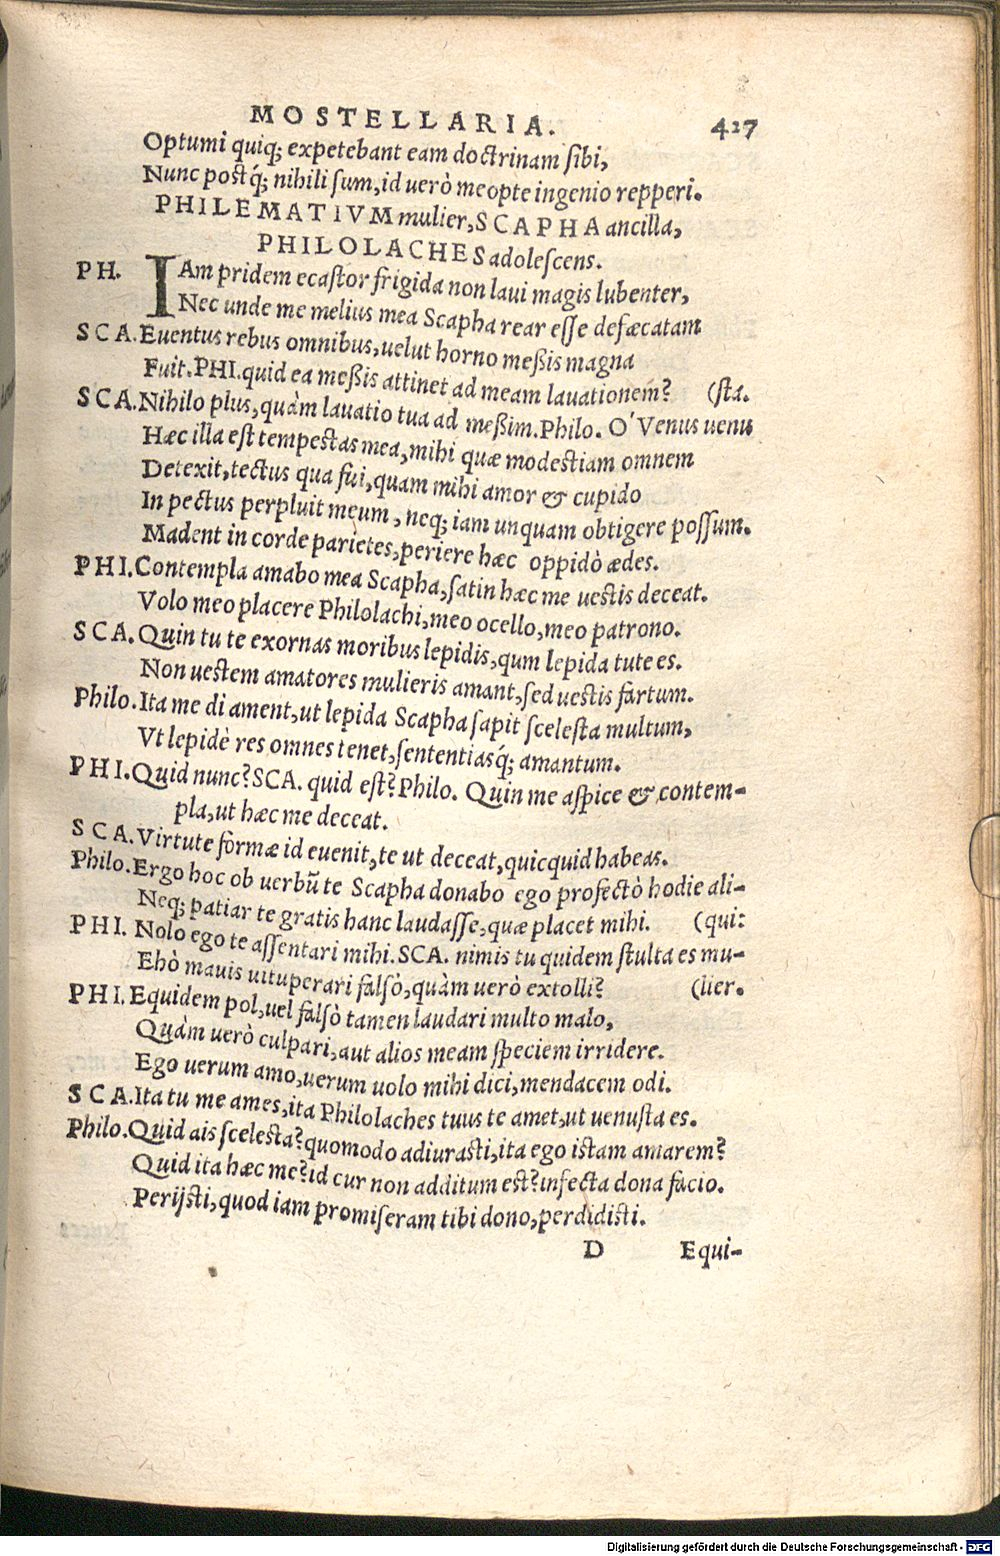 MOSTELLARIA. 427
Optumi quiq; expetebant eam doctrinam sibi,
Nunc postq́; nihili sum, id uerò meopte ingenio repperi.
PHILEMATIVM mulier, SCAPHA ancilla,
PHILOLACHES adolescens.
PH. IAm pridem ecastor frigida non laui magis lubenter,
Nec unde me melius mea Scapha rear esse defæcatam
SCA. Euentus rebus omnibus, uelut horno meßis magna
Fuit. PHI. quid ea meßis attinet ad meam lauationem? (sta.
SCA. Nihilo plus, quàm lauatio tua ad meßim. Philo. O' Venus uenu
Hæc illa est tempestas mea, mihi quæ modestiam omnem
Detexit, tectus qua fui, quam mihi amor & cupido
In pectus perpluit meum, neq; iam unquam obtigere possum.
Madent in corde parietes, periere hæc oppidò ædes.
PHI. Contempla amabo mea Scapha, satin hæc me uestis deceat.
Volo meo placere Philolachi, meo ocello, meo patrono.
SCA. Quin tu te exornas moribus lepidis, qum lepida tute es.
Non uestem amatores mulieris amant, sed uestis fartum.
Philo. Ita me di ament, ut lepida Scapha sapit scelesta multum,
Vt lepidè res omnes tenet, sententiasq́; amantum.
PHI. Quid nunc? SCA. quid est? Philo. Quin me aspice & contem-
pla, ut hæc me deceat.
SCA. Virtute formæ id euenit, te ut deceat, quicquid habeas.
Philo. Ergo hoc ob uerbũ te Scapha donabo ego profectò hodie ali-
Neq; patiar te gratis hanc laudasse, quæ placet mihi. (qui:
PHI. Nolo ego te assentari mihi. SCA. nimis tu quidem stulta es mu-
Ehò mauis uituperari falsò, quàm uerò extolli? (lier.
PHI. Equidem pol, uel falsò tamen laudari multo malo,
Quàm uerò culpari, aut alios meam speciem irridere.
Ego uerum amo, uerum uolo mihi dici, mendacem odi.
SCA. Ita tu me ames, ita Philolaches tuus te amet, ut uenusta es.
Philo. Quid ais scelesta? quomodo adiurasti, ita ego istam amarem?
Quid ita hæc me? id cur non additum est? infecta dona facio.
Perijsti, quod iam promiseram tibi dono, perdidisti.
D Equi-
Digitalisierung gefördert durch die Deutsche Forschungsgemeinschaft - DFG